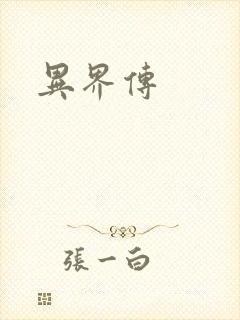 異界傳
張一白